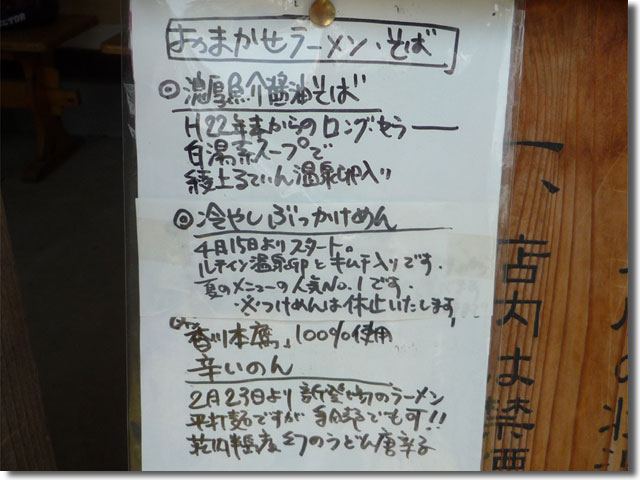 おまかせラーメン・そば
◎濃厚魚介醤油そば
H22年末からのロングセラー
白湯系スープで
綾上るていん温泉卵入り
◎冷やしぶっかけめん
4月15日よりスタート。
ルテイン温泉卵とキムチ入りです。
夏のメニューの人気No.1です。
※つけめんは休止いたします。
「香川本鷹」100%使用
辛いのん
2月23日より新登場のラーメン
平打麺ですが細麺でも可!!
幻のうどん唐辛子
一、店内は禁酒